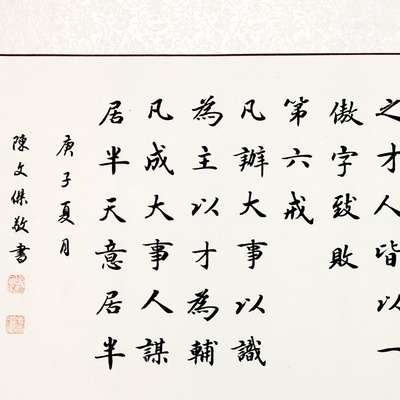 之才人皆以一
傲字致敗
第六戒
凡辦大事以識
為主以才為輔
凡成大事人謀
居半天意居半
庚子夏月
陳文傑敬書